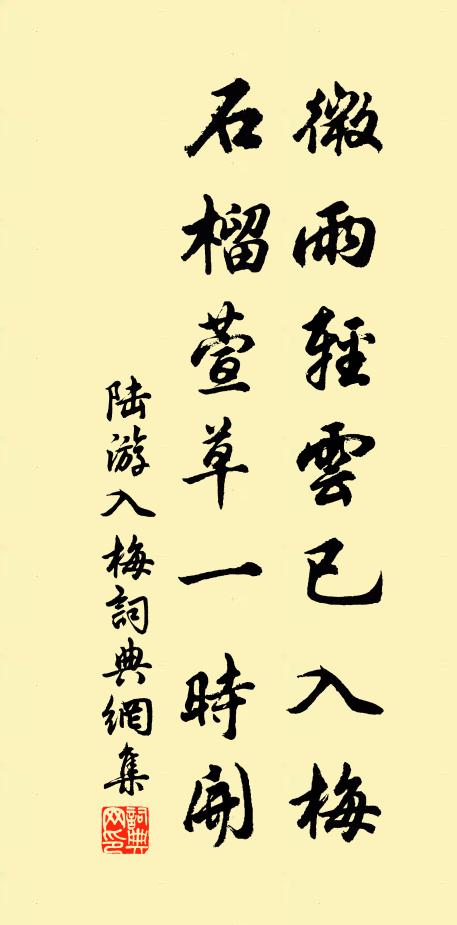 微雨輕雲已入梅
石榴萱草一時開
陸游入梅詞典網集
詞典網印